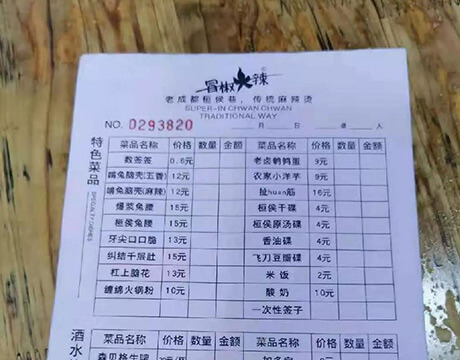 冒椒火辣
老成都桓侯巷，传统麻辣烫
SUPER-IN CHWAN CHWAN
TRADITIONAL WAY
NO. 0293820 月 日 桌 人
特色菜品
SPECIALTY DISHES
菜品名称 价格 数量 金额 菜品名称 价格 数量 金额
数签签 0.6元 老卤鹌鹑蛋 9元
嘴兔脑壳(五香) 12元 农家小洋芋 9元
嘴兔脑壳(麻辣) 12元 扯huan筋 16元
爆浆兔腰 15元 桓侯干碟 4元
桓侯兔腰 15元 桓侯原汤碟 4元
牙尖口口脆 13元 香油碟 4元
纠结千层肚 15元 飞刀豆瓣碟 4元
杠上脑花 13元 米饭 2元
缠绵火锅粉 10元 酸奶 10元
一次性签子
酒水
菜品名称 价格 数量 金额 菜品名称 价格 数量 金额